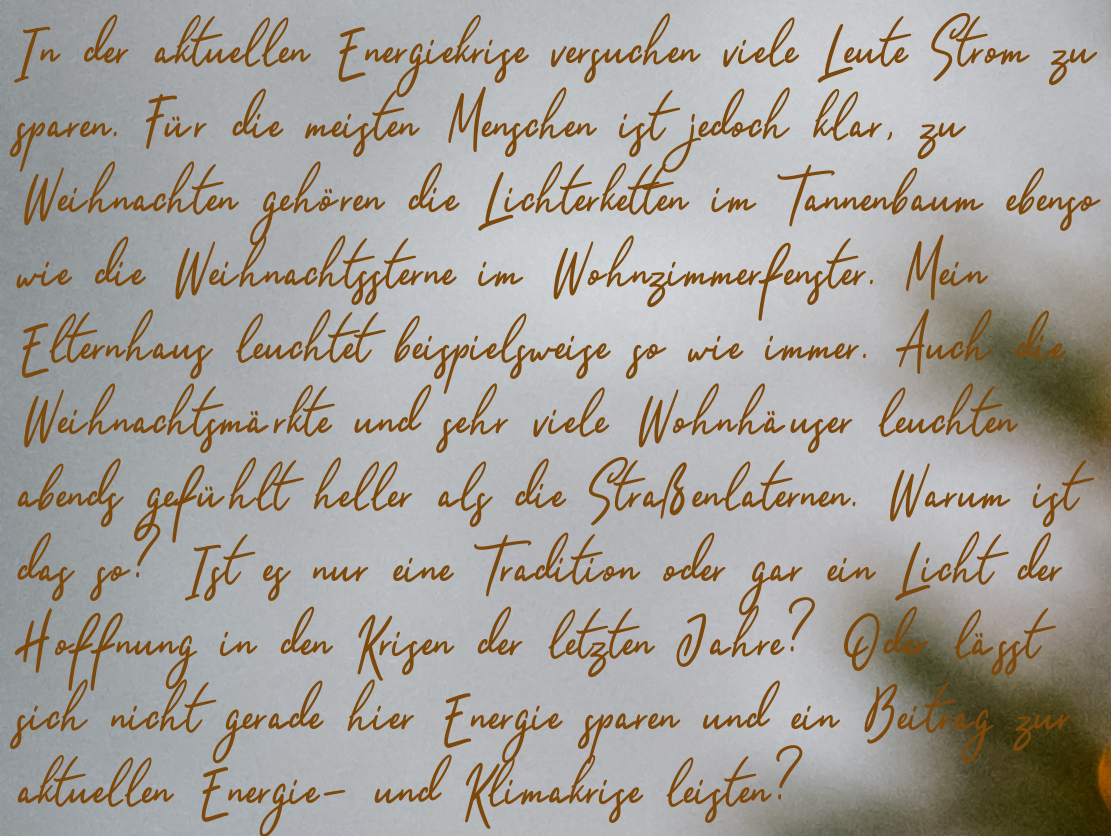 In der aktuellen Energiekrise versuchen viele Leute Strom zu
sparen. Für die meisten Menschen ist jedoch klar, zu
Weihnachten gehören die Lichterketten im Tannenbaum ebenso
wie die Weihnachtssterne im Wohnzimmerfenster. Mein
Elternhaus leuchtet beispielsweise so wie immer. Auch die
Weihnachtsmärkte und sehr viele Wohnhäuser leuchten
abends gefühlt heller als die Straßenlaternen. Warum ist
das so? Ist es nur eine Tradition oder gar ein Licht der
Hoffnung in den Krisen der letzten Jahre? Oder lässt
sich nicht gerade hier Energie sparen und ein Beitrag zur
aktuellen Energie– und Klimakrise leisten?